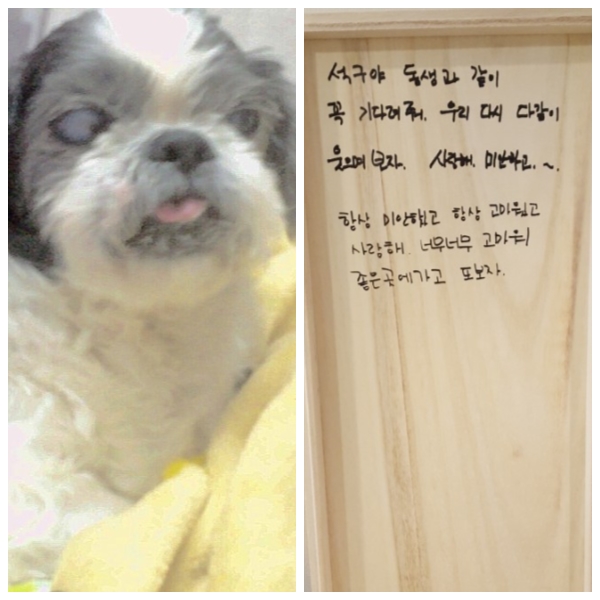 석구야 동생과 같이
꼭 기다려줘. 우리 다시 다같이
웃으며 보자. 사랑해. 미안하고. ~.
항상 미안했고 항상 고마웠고
사랑해. 너무너무 고마워
좋은곳에가고 또보자.